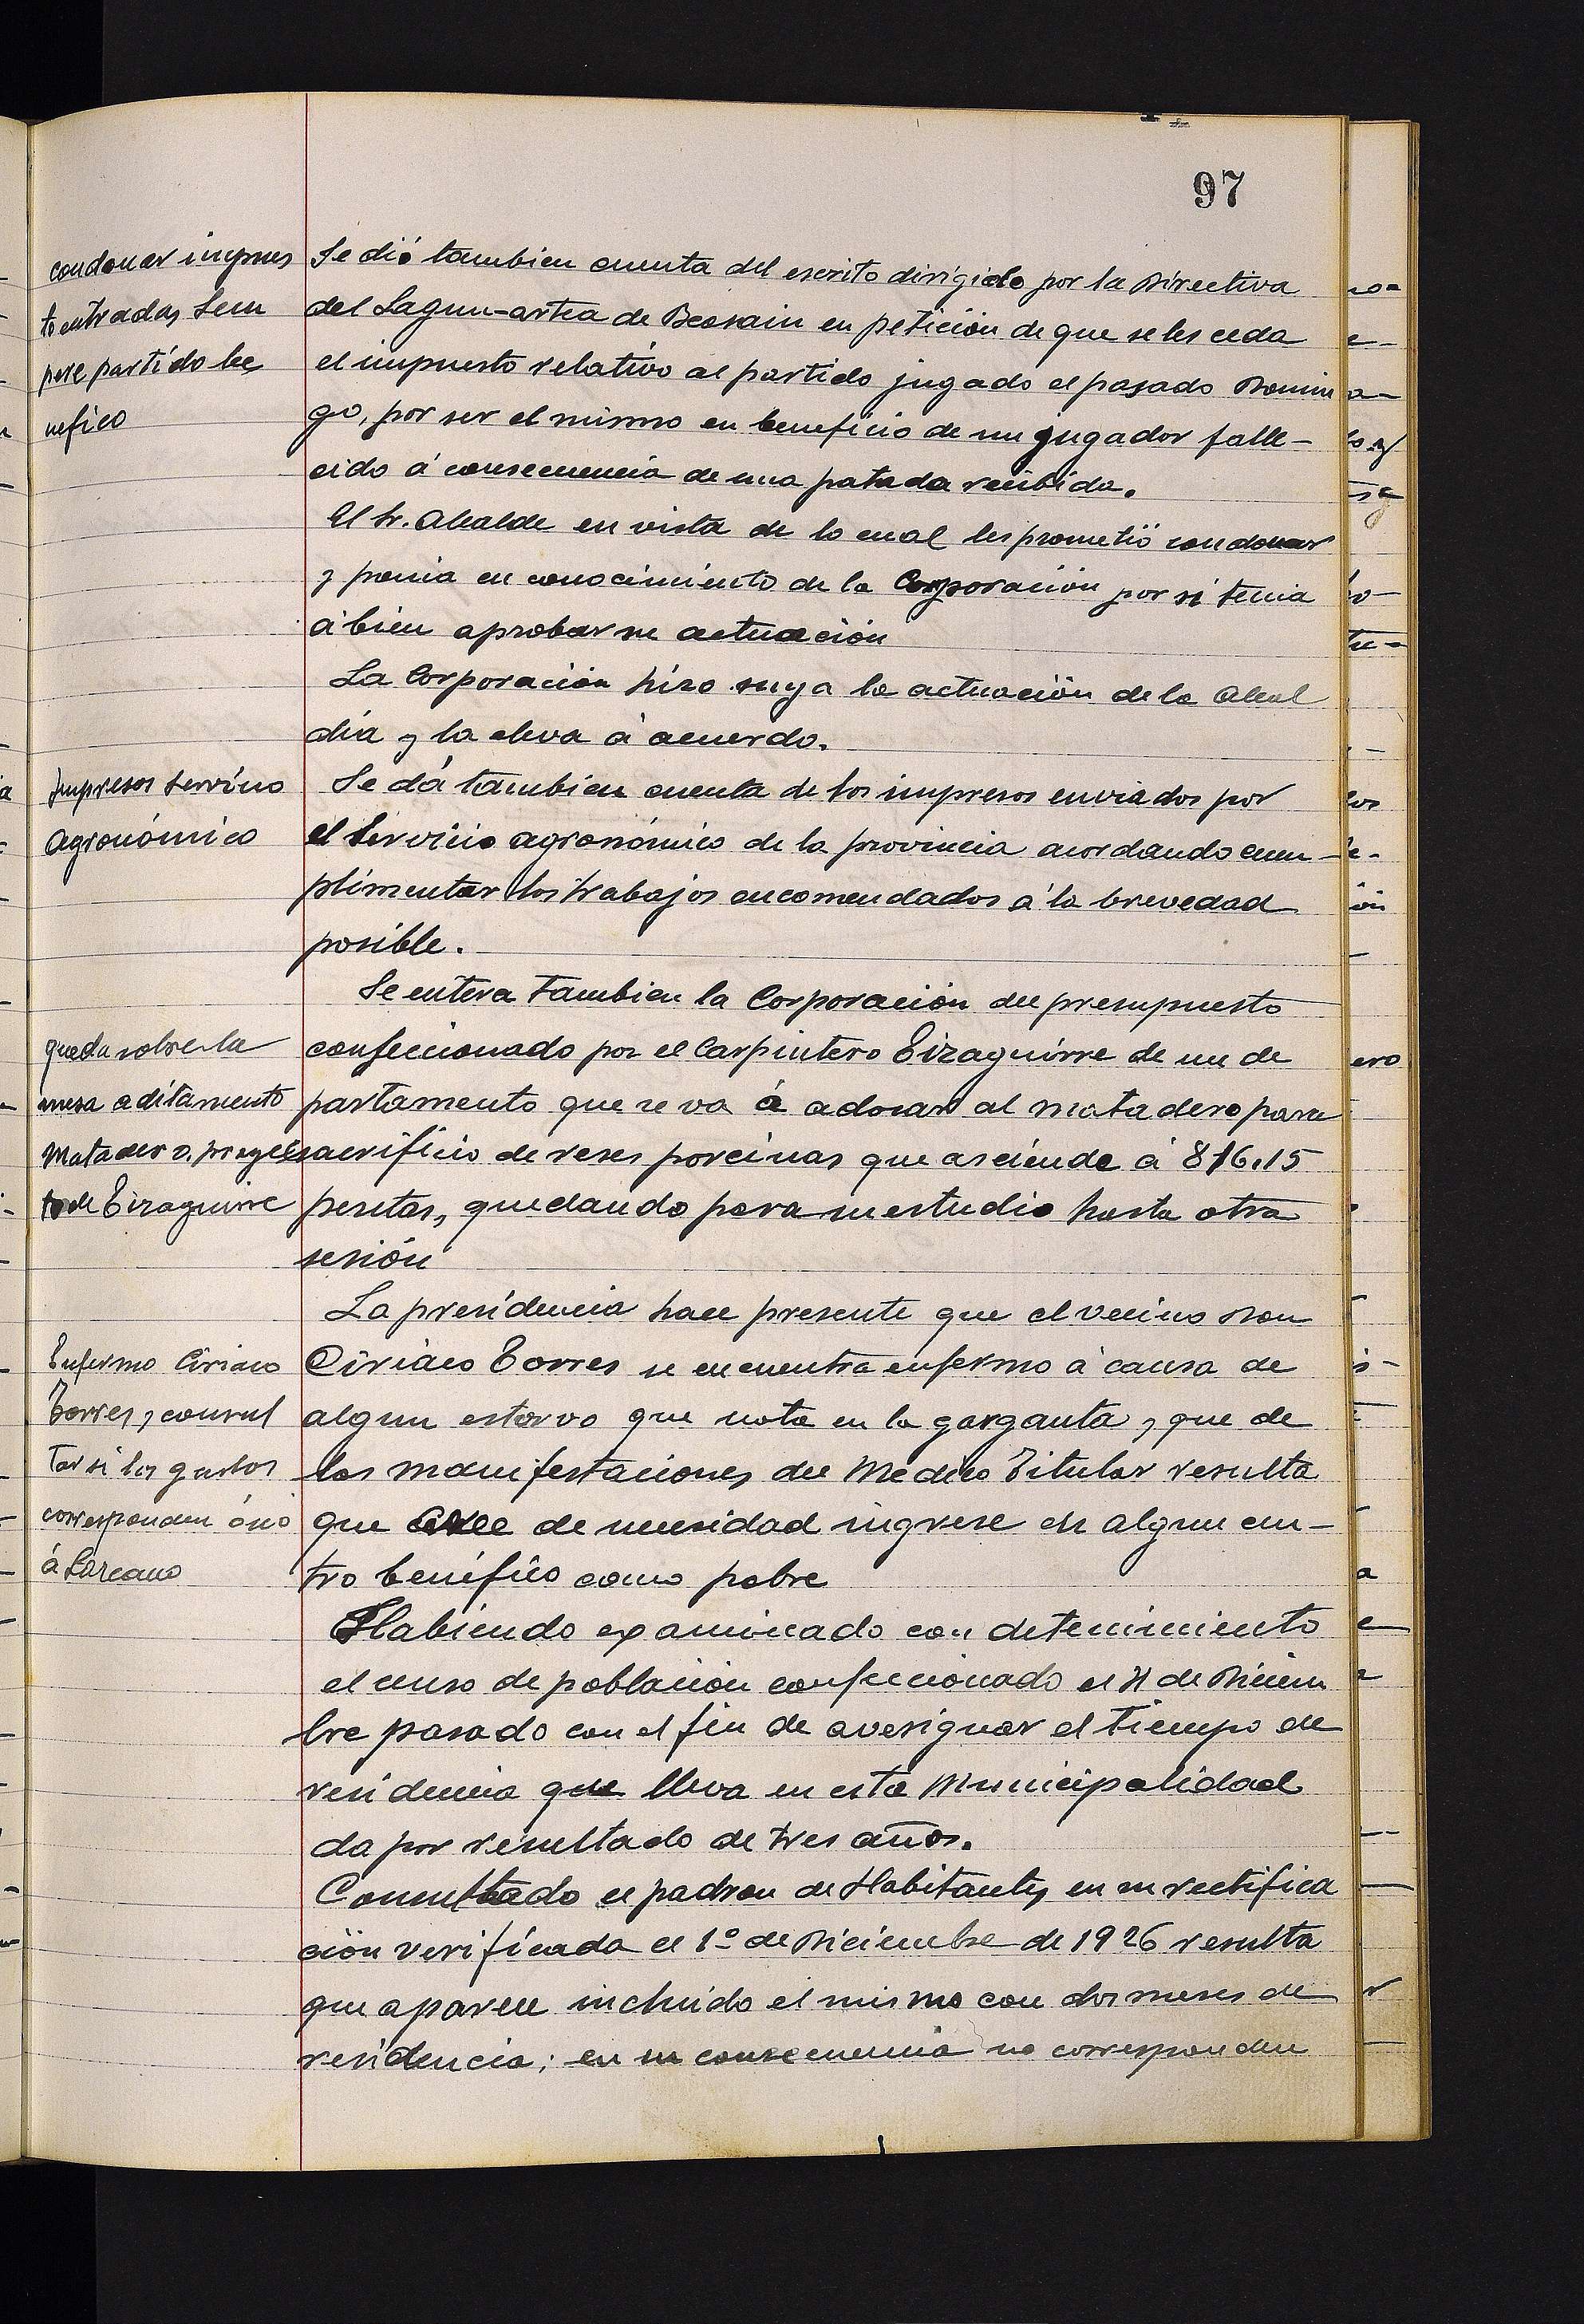 97
condonar impues
to entradas Sem
pere partido be
nefico
Se dió tambien cuenta del escrito dirigido por la Directiva
del Lagun-artea de Beasain en petición de que se les ceda
el impuesto relativo al partido jugado el pasado Domin
go, por ser el mismo en beneficio de un jugador falle-
cido á consecuencia de una patada recibida.
El Sr. Alcalde en vista de lo cual les prometió condonar
y ponia en conocimiento de la Corporación por si tenia
á bien aprobar su actuación
La Corporación hizo suya la actuación de la Alcal
dia y la eleva á acuerdo.
Impresos Servicio
Agronómico
Se dá tambien cuenta de los impresos enviados por
el Servicio agronómico de la provincia acordando cum-
plimentar los trabajos encomendados á la brevedad
posible.
Se entera tambien la Corporación del presupuesto
queda sobre la
mesa aditamento
Matadero. proyec
to de Eizaguirre
confeccionado por el Carpintero Eizaguirre de un de
partamento que se va á adosar al matadero para
sacrificio de reses porcinas que asciende á 816.15
pesetas, quedando para su estudio hasta otra
sesión
La presidencia hace presente que el vecino Don
Enfermo Ciriaco
Torres, consul
tar si los gastos
corresponden ó nó
á Lazcano
Ciriaco Torres se encuentra enfermo á causa de
algun estorvo que nota en la garganta, que de
las manifestaciones del Medico Titular resulta
que cree de necesidad ingrese en algun cen-
tro benéfico como pobre
Habiendo examinado con detenimiento
el censo de población confeccionado el 31 de Diciem
bre pasado con el fin de averiguar el tiempo de
residencia que lleva en esta Municipalidad
da por resultado de tres años.
Consultado el padron de Habitantes, en su rectifica
ción verificada el 1º de Diciembre de 1926 resulta
que aparece incluido el mismo con dos meses de
residencia; en su consecuencia no corresponden